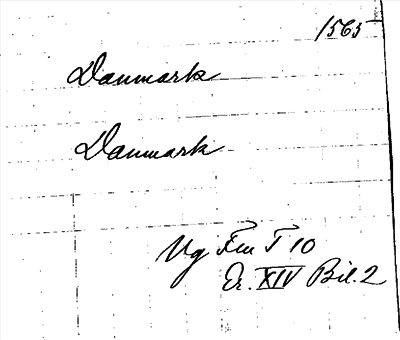 1565
Danmark
Danmark
Ug Fm T 10
Er. XIV Bil. 2